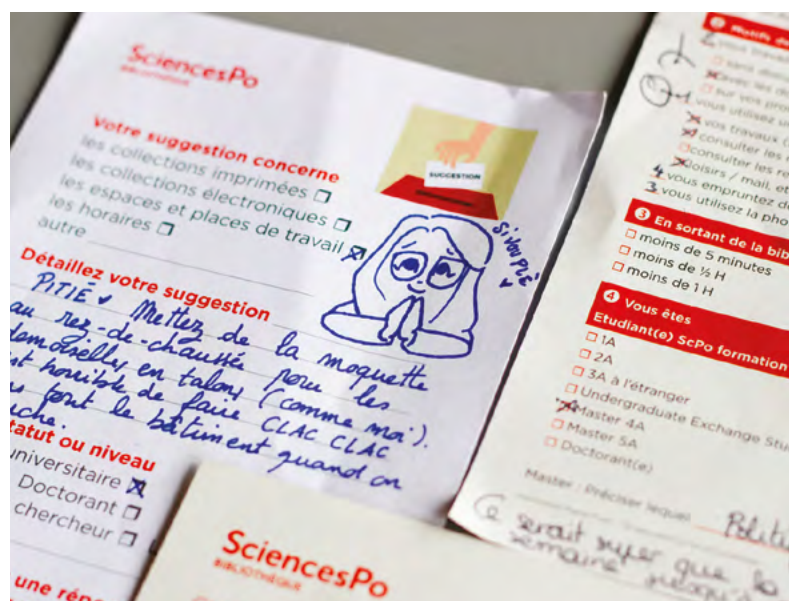 SciencesPo
BIBLIOTHÈQUE
Votre suggestion concerne
les collections imprimées
les collections électroniques
les espaces et places de travail
les horaires
autre
SUGGESTION
SIVOUPLÉ
Détaillez votre suggestion
PITIÉ Mettez de la moquette
au rez-de-chaussée pour les
demoiselles en talons (comme moi).
st horrible de faire CLAC CLAC
s tout le bâtiment quand on
che.
tatut ou niveau
universitaire
Doctorant
chercheur
une répo
SciencesPo
BIBLIOTHÈQUE
2 Motifs de
2 vous travai
sans docu
avec les do
sur vos pro
1 vous utilisez u
vos travaux (
consulter les r
consulter les re
loisirs / mail, et
4 vous empruntez de
3 vous utilisez la pho
3 En sortant de la bib
moins de 5 minutes
moins de ½ H
moins de 1 H
4 Vous êtes
Etudiant(e) ScPo formation
1A
2A
3A à l'étranger
Undergraduate Exchange Stu
Master 4A
Master 5A
Doctorant(e)
Master : Préciser lequel Politi
Ce serait super que la
semaine jusqu'à